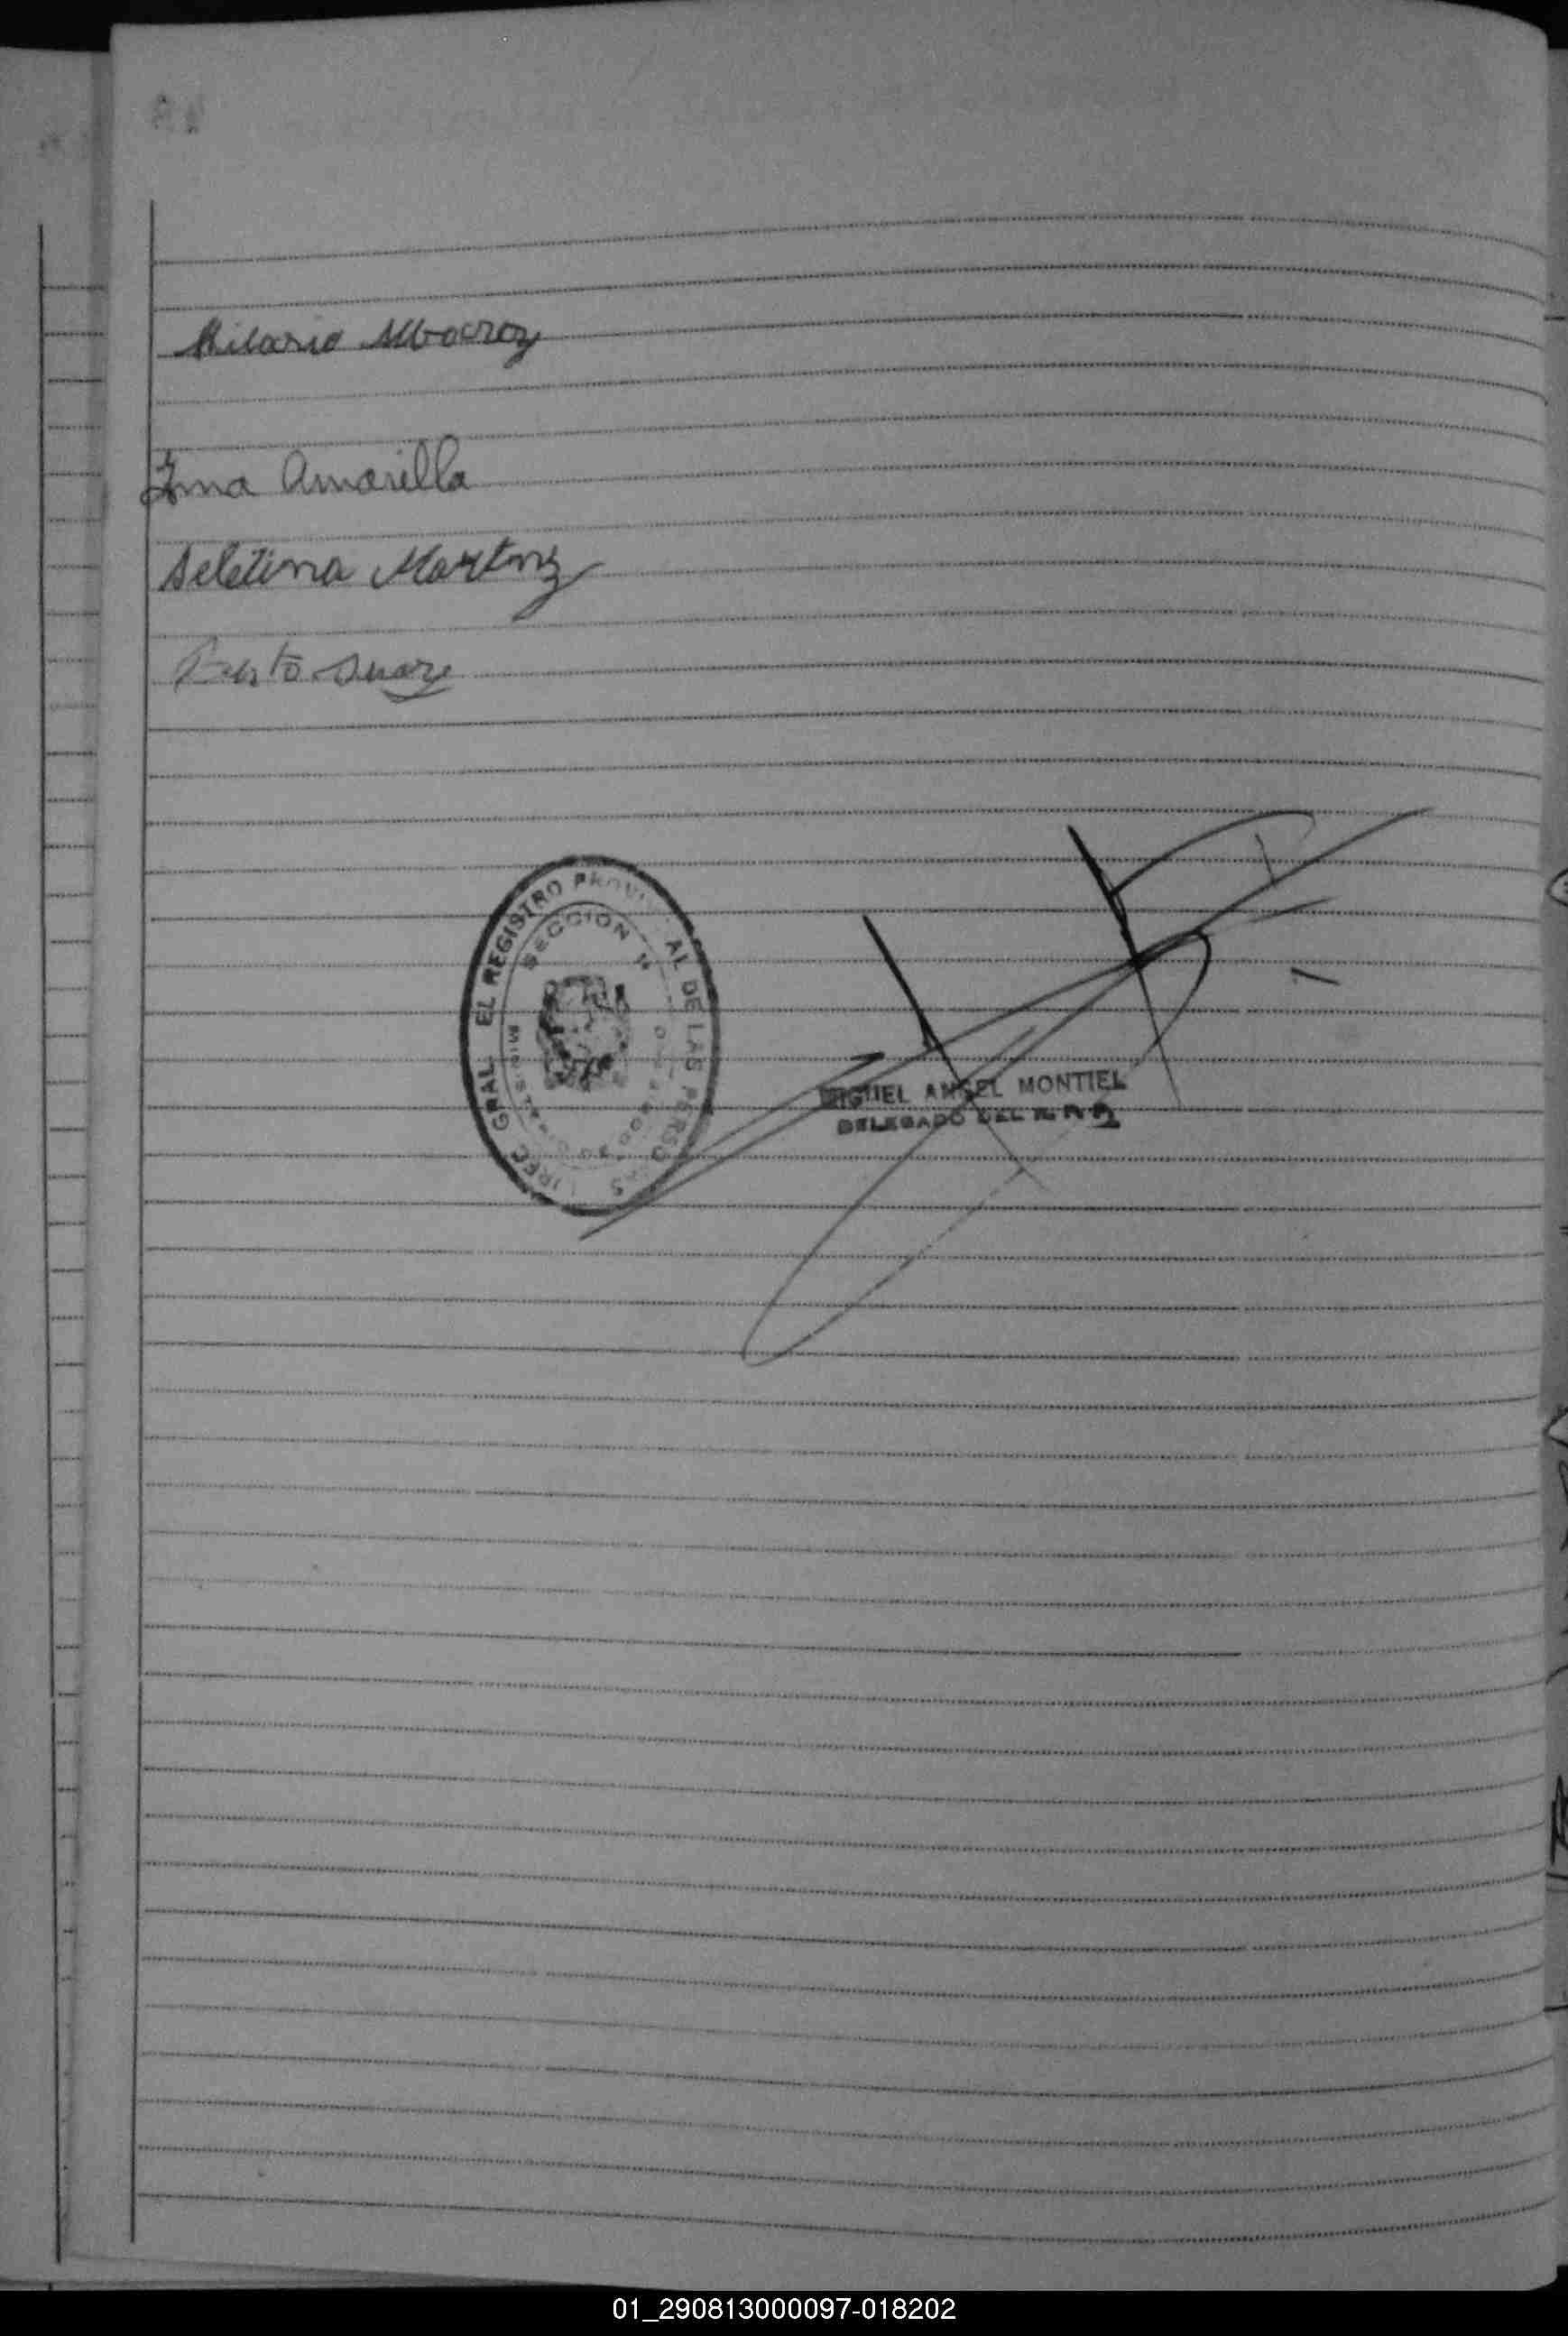 Hilario Albornoz
Irma Amarilla
Seletina Martinz
Justo Suarz
DIREC. GRAL. DEL REGISTRO PROVINCIAL DE LAS PERSONAS
SECCION
MIGUEL ANGEL MONTIEL
DELEGADO DEL R. P. P.
01_290813000097-018202